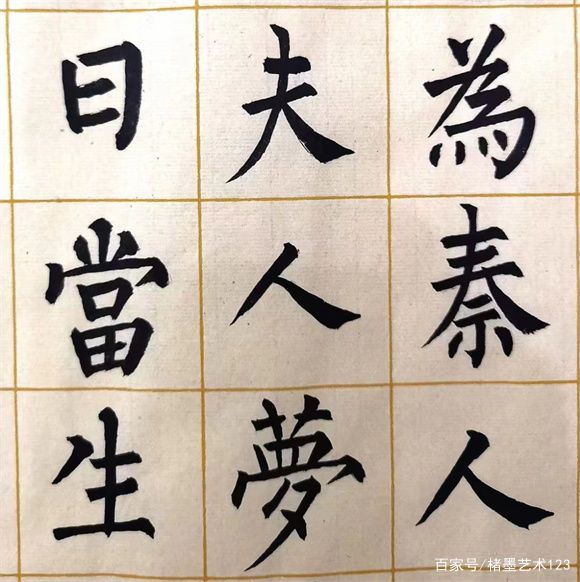 為秦人
夫人夢
日當生
百家号/楮墨艺术123